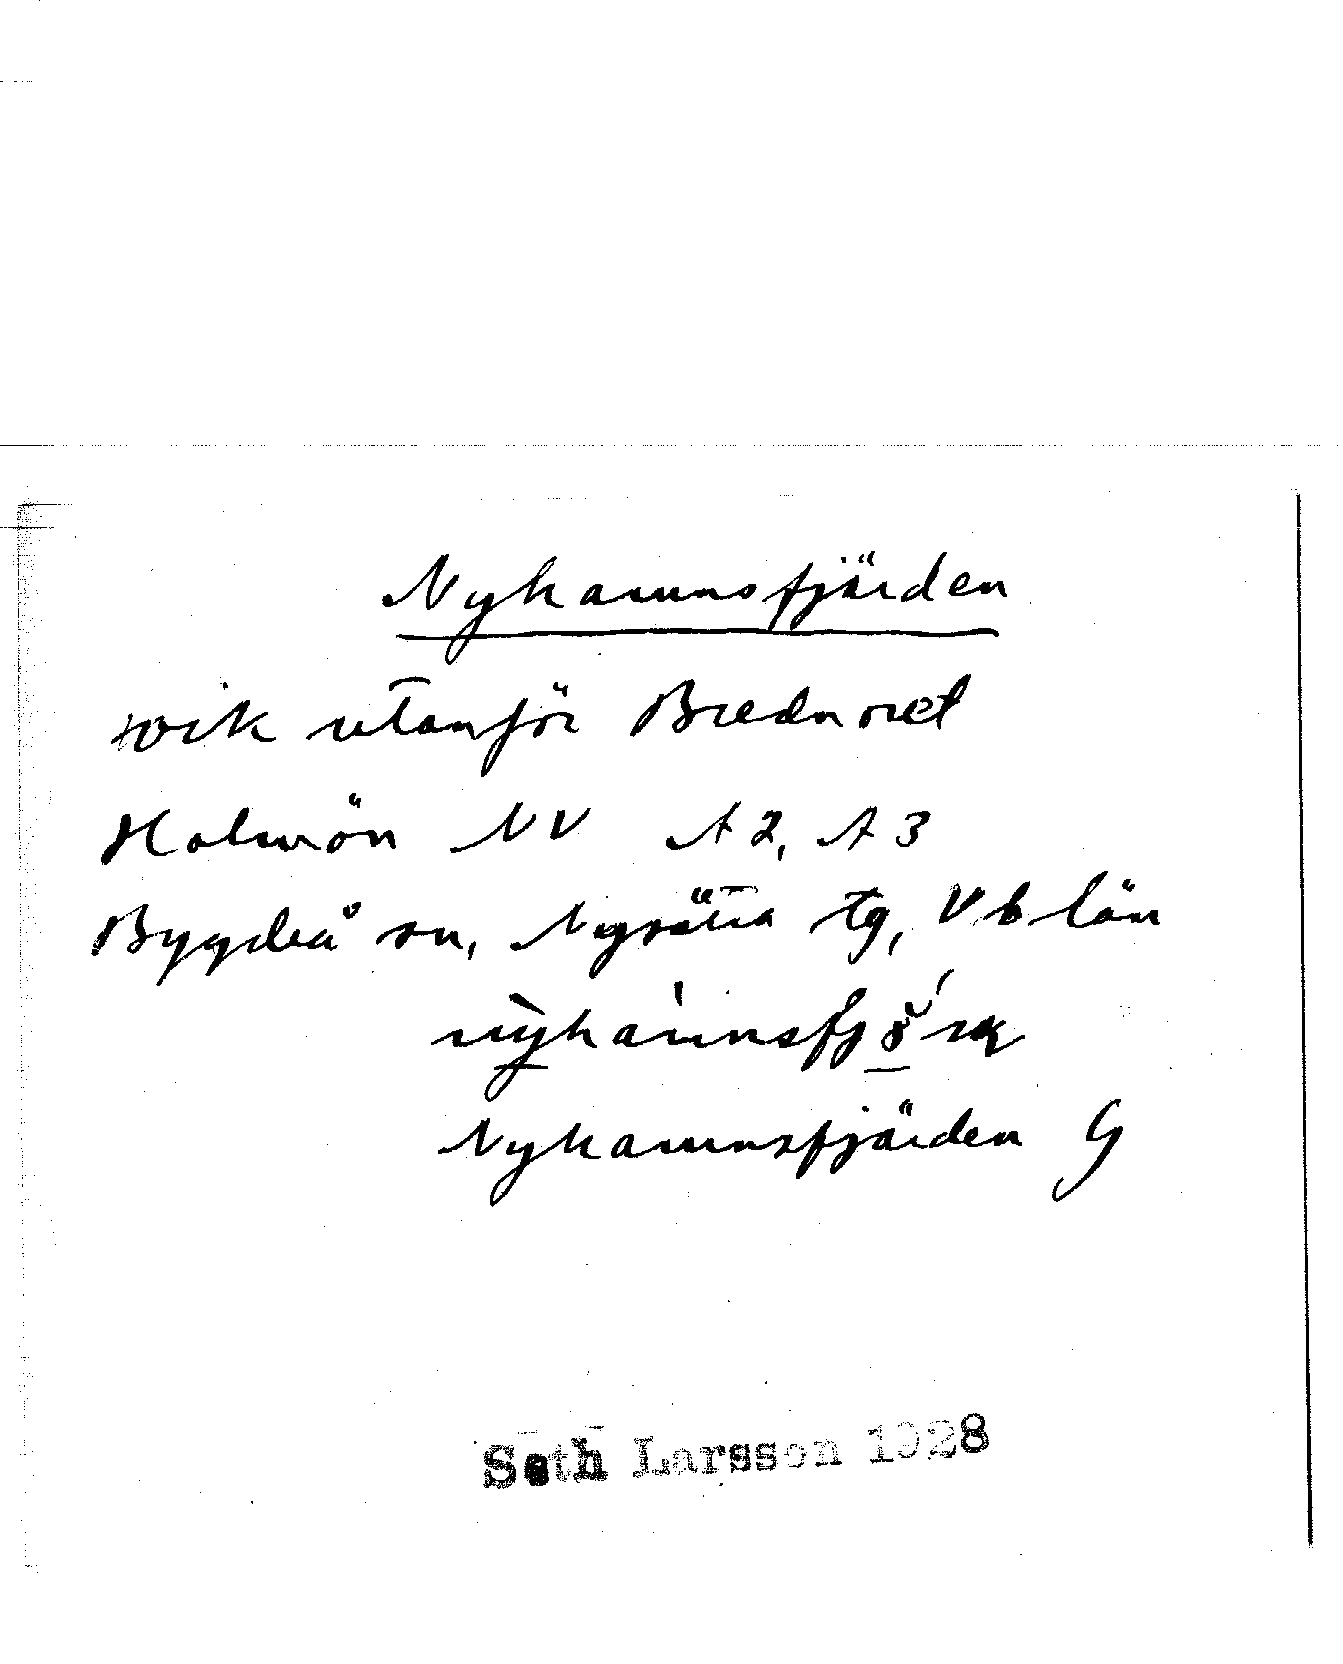 Nyhamnsfjärden
wik utanför Brednoret
Holmön NV A2, A3
Bygdeå sn, Nysätra tg, Vb län
Nyhamnsfjärden G
Seth Larsson 1928